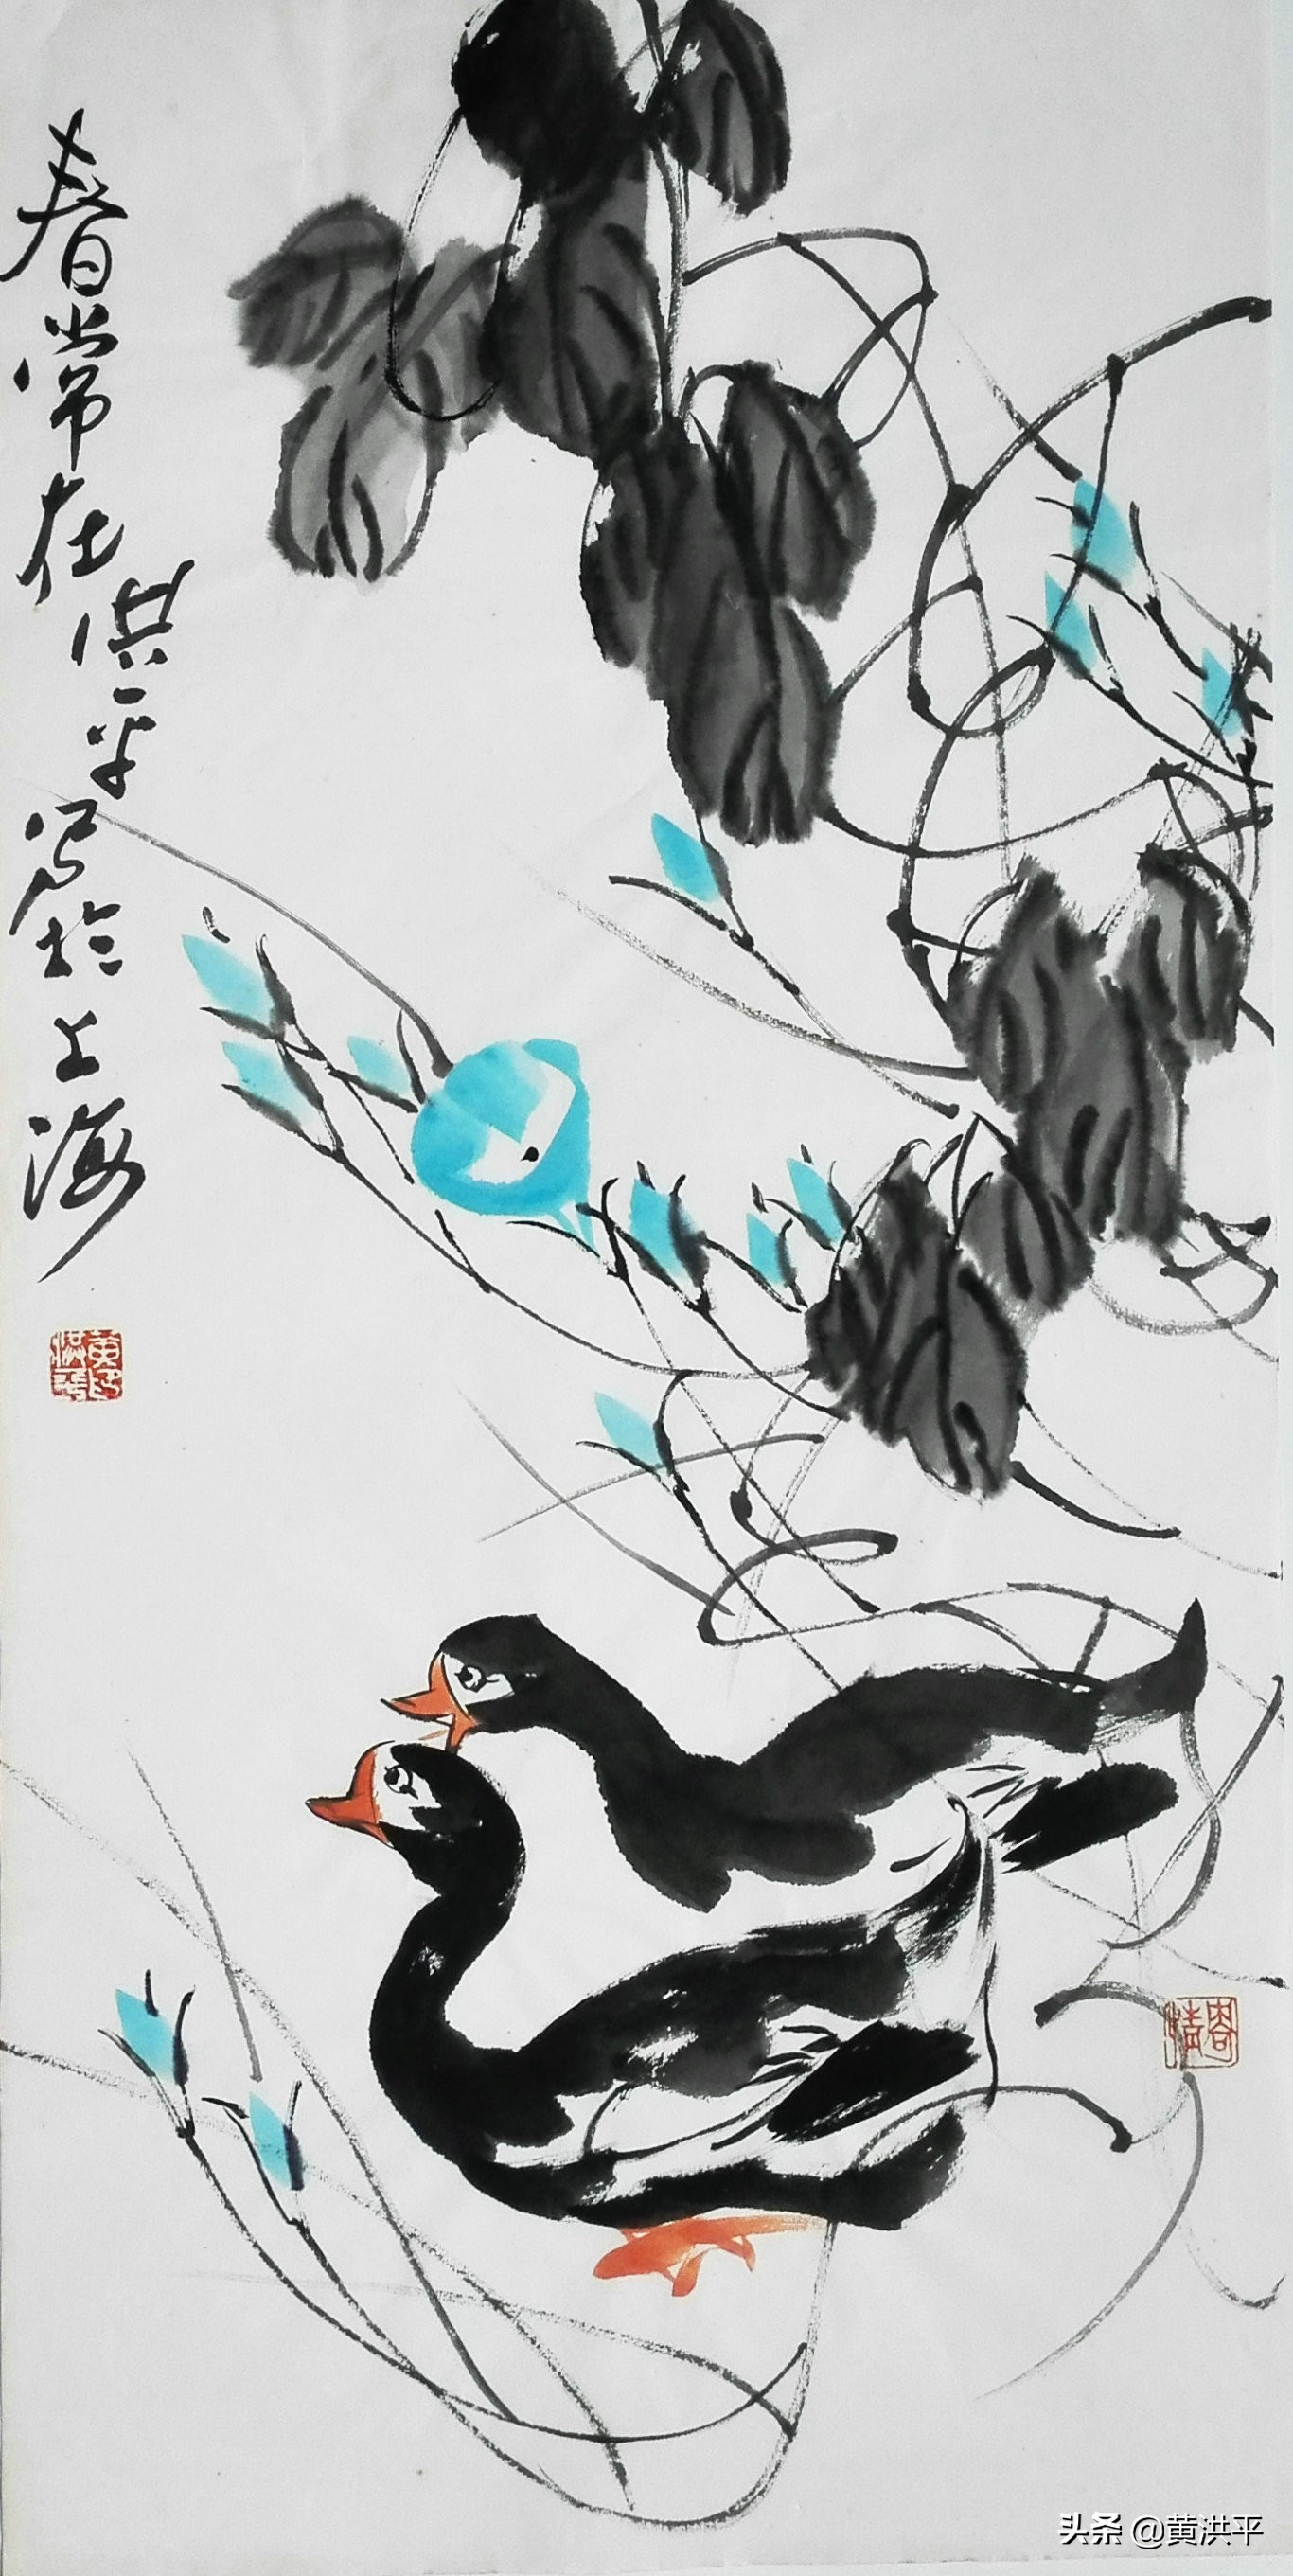 春常在
洪平
写於上海
黄洪平印
头条 @黄洪平